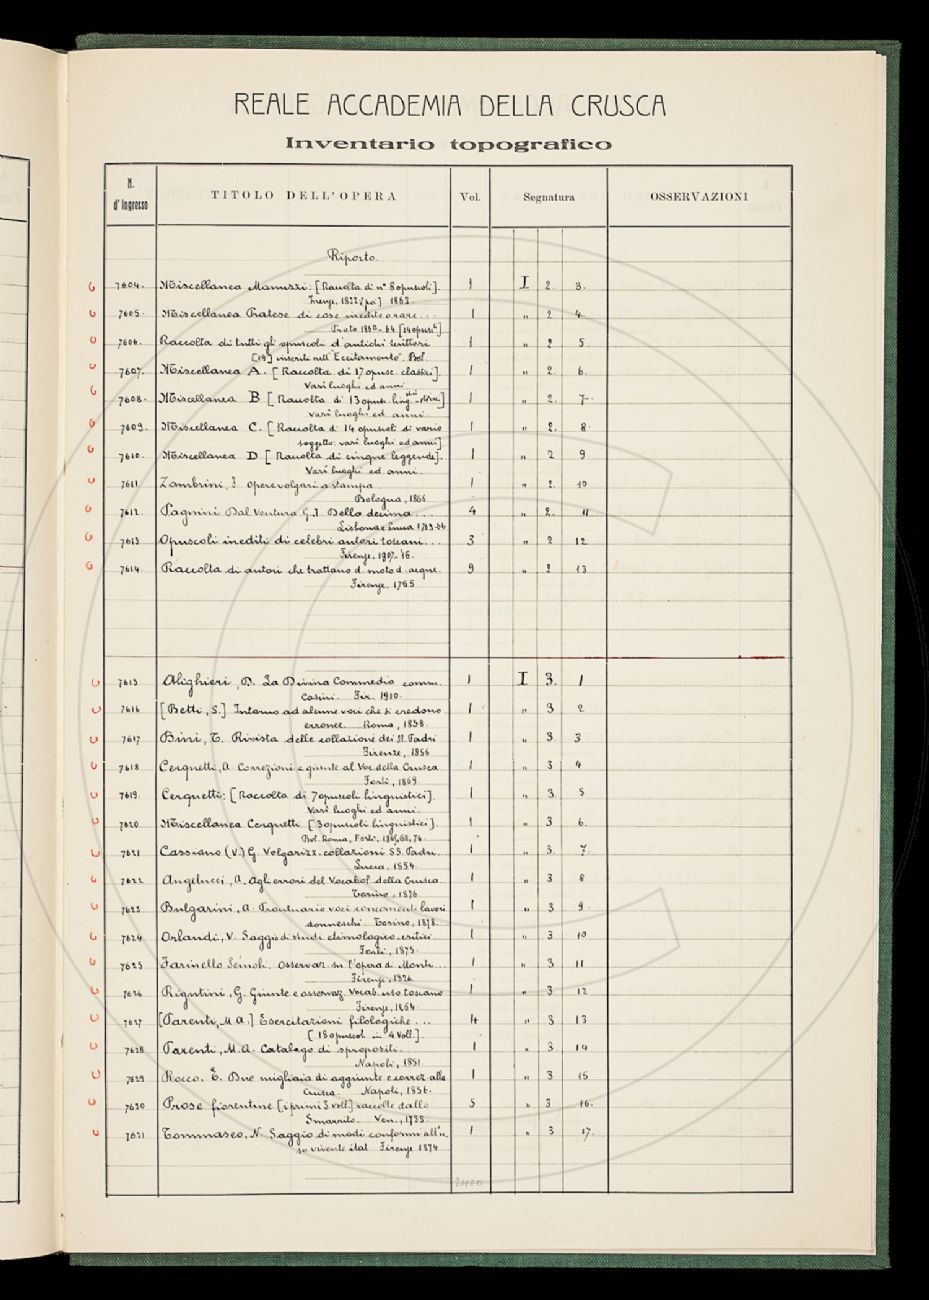 REALE ACCADEMIA DELLA CRUSCA
Inventario topografico
N. d'Ingresso TITOLO DELL'OPERA Vol. Segnatura OSSERVAZIONI
Riporto.
7604. Miscellanea Manuzzi: [Raccolta di n° 8 opuscoli]. 1 I 2. 3.
Firenze, 1822 [poi] 1863.
7605. Miscellanea Pratese di cose inedite o rare... 1 " 2 4.
Prato. 1860-64 [14 opusli].
7606. Raccolta di tutti gli opuscoli d'antichi scrittori 1 " 2 5.
[19] inseriti nell'"Eccitamento". Bol.
7607. Miscellanea A. [Raccolta di 17 opusc. classici]. 1 " 2. 6.
Vari luoghi ed anni.
7608. Miscellanea B [Raccolta di 13 opusc. ling.stici] 1 " 2. 7.
vari luoghi ed anni.
7609. Miscellanea C. [Raccolta di 14 opuscoli di vario 1 " 2. 8.
soggetto: vari luoghi ed anni]
7610. Miscellanea D [Raccolta di cinque leggende]. 1 " 2 9
Vari luoghi ed anni.
7611 Zambrini, F. Opere volgari a stampa 1 " 2. 10
Bologna, 1866
7612. Pagnini Dal Ventura G. F. Della decima.... 4 " 2. 11
Lisbona e Lucca 1765-66
7613 Opuscoli inediti di celebri autori toscani... 3 " 2 12
Firenze, 1807-'16.
7614. Raccolta di autori che trattano d. moto d. acque. 9 " 2 13
Firenze, 1765
7615 Alighieri, D. La Divina Commedia comm. 1 I 3. 1
Casini. Fir. 1910.
7616 [Betti, S.] Intorno ad alcune voci che si credono 1 " 3 2
erronee. Roma, 1858.
7617 Bini, T. Rivista delle collazione dei SS. Padri 1 " 3 3
Firenze, 1856
7618 Cerquetti, A. Correzioni e giunte al Voc. della Crusca 1 " 3 4
Forlì, 1869
7619. Cerquetti: [Raccolta di 7 opuscoli linguistici]. 1 " 3. 5
Vari luoghi ed anni.
7620 Miscellanea Cerquetti [3 opuscoli linguistici]. 1 " 3 6.
Bol. Roma, Forlì, 1865, 68, 74.
7621 Cassiano (V.) G. Volgarizz. collazioni SS. Padri. 1 " 3. 7.
Lucca, 1854.
7622 Angelucci, A. Agli errori del Vocabol. della Crusca. 1 " 3 8
Torino, 1876
7623 Bulgarini, A. Prontuario voci concernenti lavori 1 " 3 9.
donneschi. Torino, 1878.
7624 Orlandi, V. Saggio di studi etimologico-critici 1 " 3 10.
Forlì, 1875.
7625 Farinello Semoli. Osservaz. su l'opera di Monti... 1 " 3 11
Firenze, 1826
7626 Rigutini, G. Giunte e osservaz. Vocab. uso toscano 1 " 3 12
Firenze, 1864
7627 [Parenti, M.A.] Esercitazioni filologiche... 4 " 3 13
[18 opuscoli in 4 Voll.].
7628 Parenti, M.A. Catalogo di spropositi. 1 " 3 14
Napoli, 1851
7629 Rocco, E. Due migliaia di aggiunte e correz. alla 1 " 3 15
Crusca. Napoli, 1856.
7630 Prose fiorentine [i primi 5 voll] raccolte dallo 5 " 3 16.
Smarrito. Ven., 1735.
7631 Tommaseo, N. Saggio di modi conformi all'u- 1 " 3 17.
so vivente ital. Firenze 1874